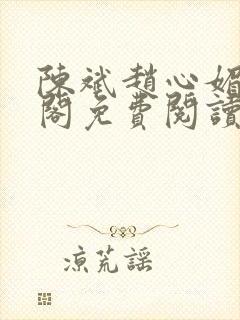 陳斌趙心媚
閣免費閱讀
涼荒謠